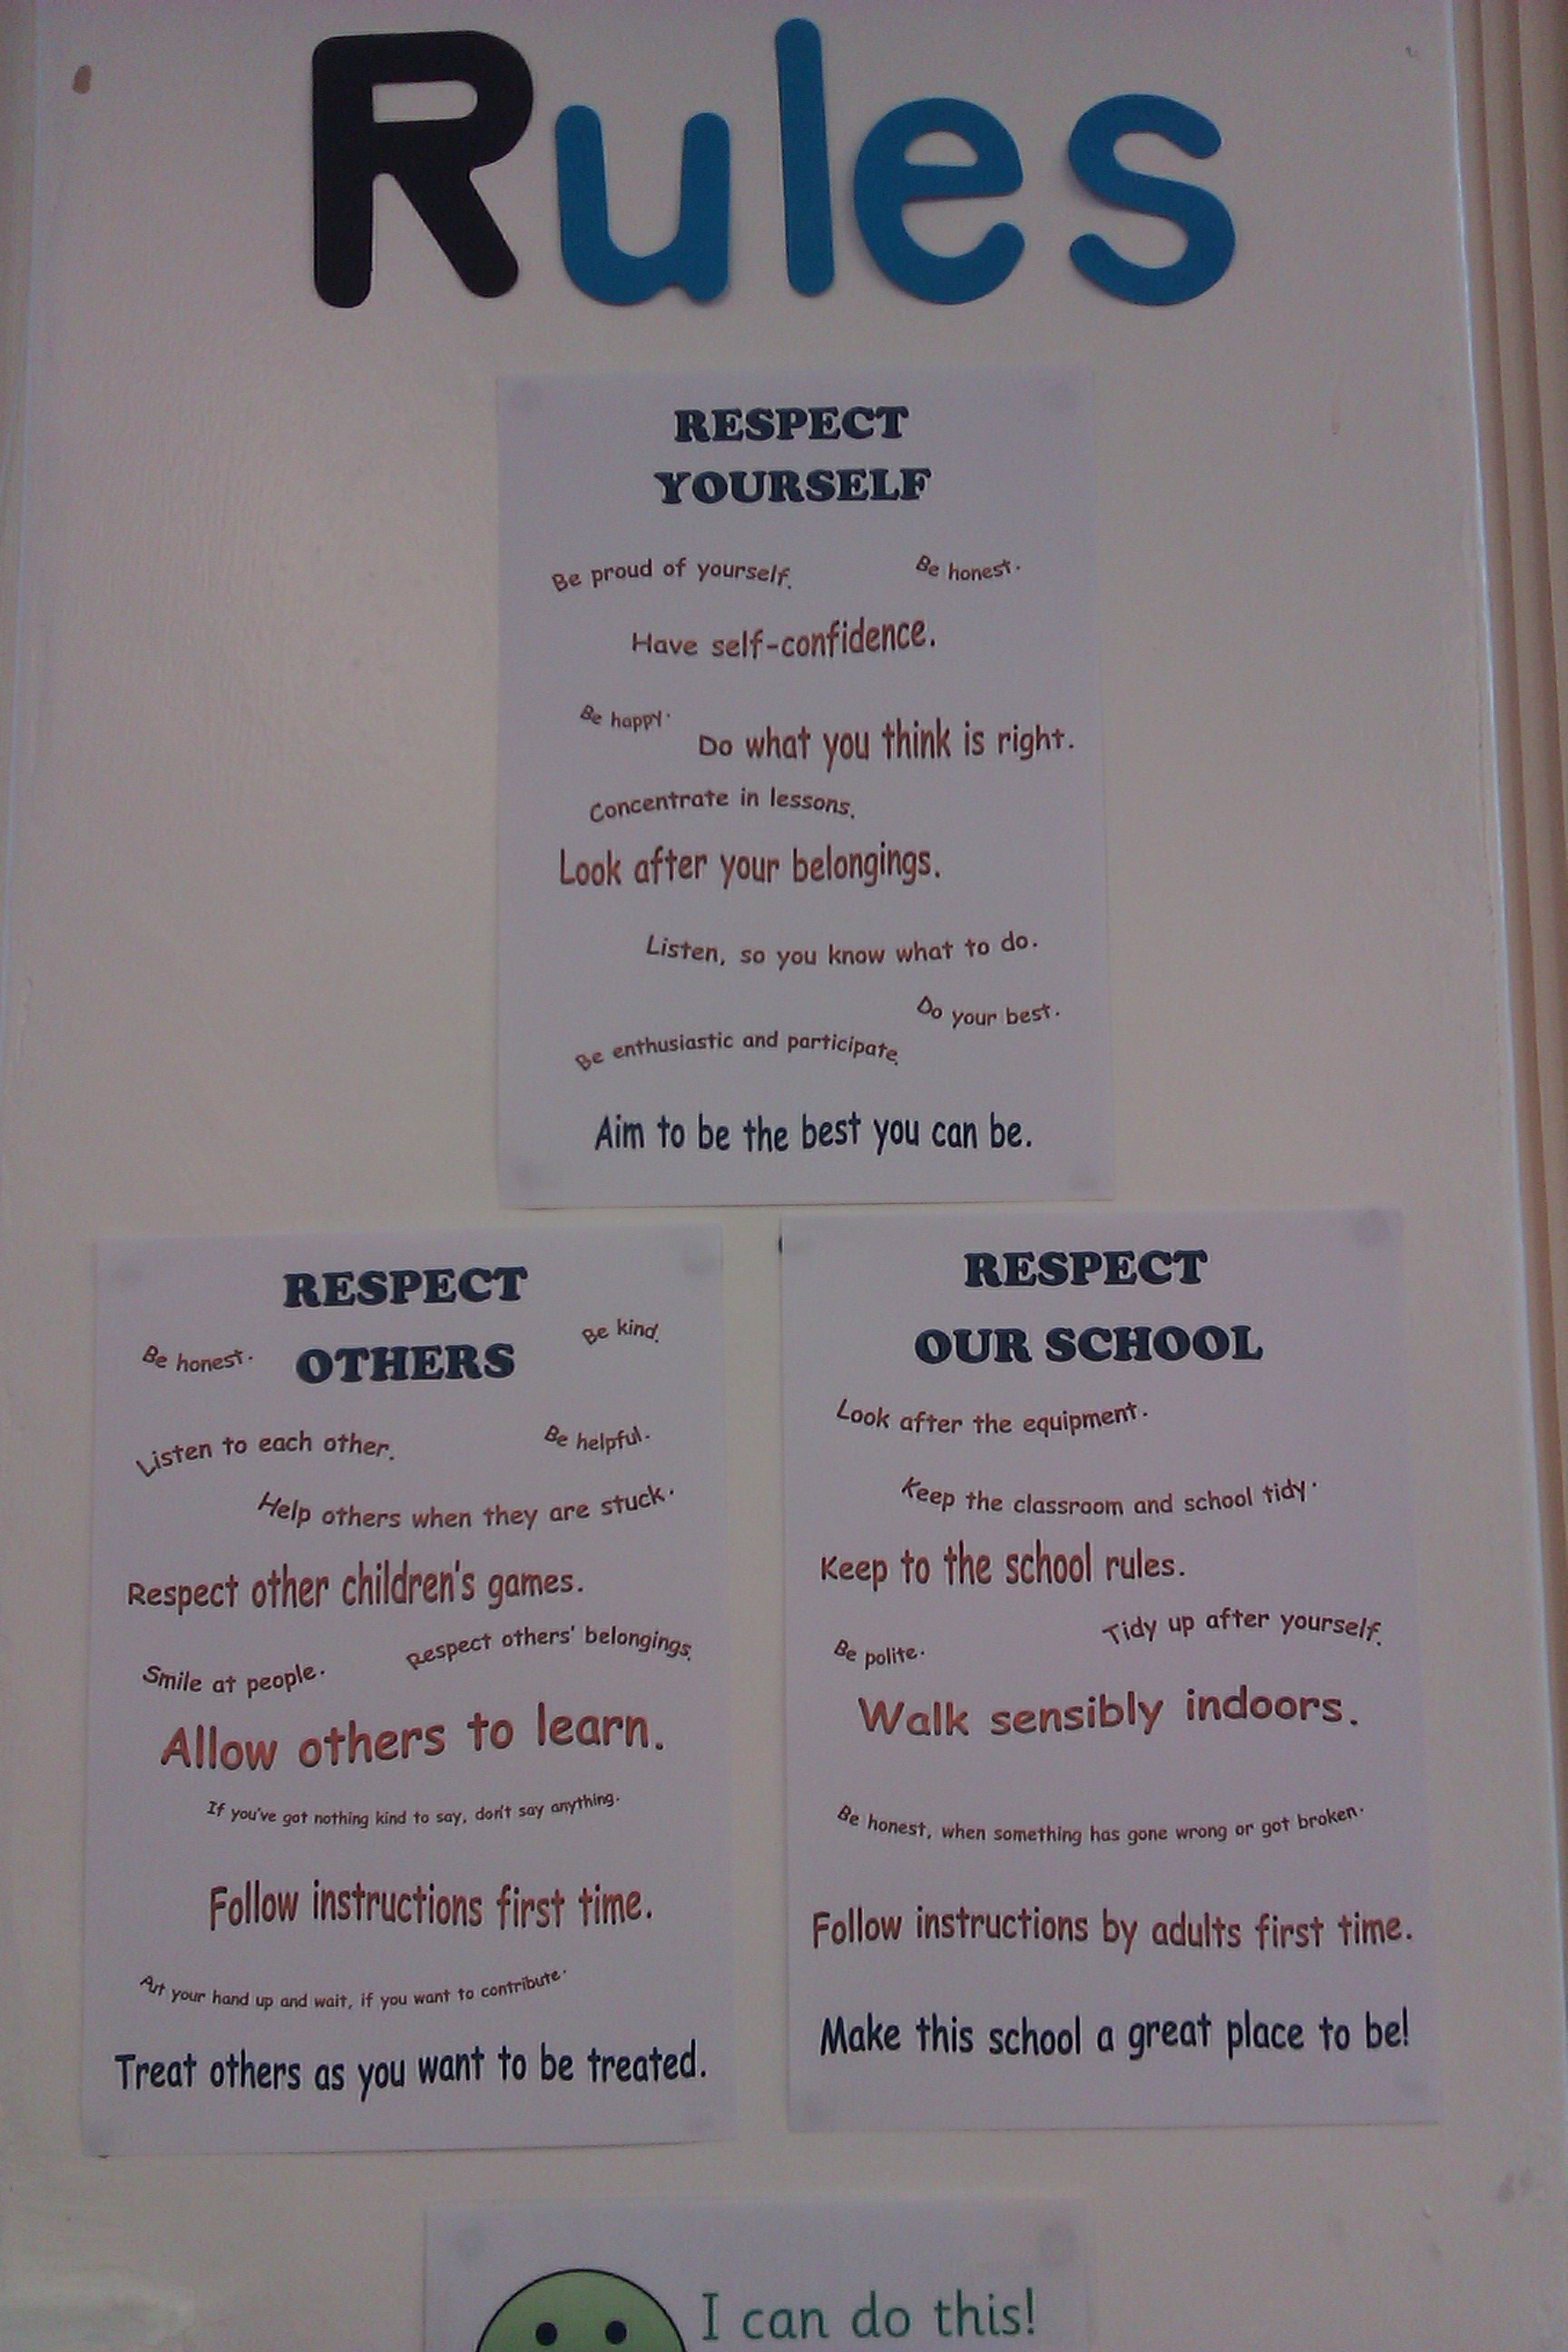 Rules
RESPECT
YOURSELF
Be proud of yourself.
Be honest.
Have self-confidence.
Be happy.
Do what you think is right.
Concentrate in lessons.
Look after your belongings.
Listen, so you know what to do.
Do your best.
Be enthusiastic and participate.
Aim to be the best you can be.
RESPECT
OTHERS
Be honest.
Be kind.
Listen to each other.
Be helpful.
Help others when they are stuck.
Respect other children's games.
Respect others' belongings.
Smile at people.
Allow others to learn.
If you've got nothing kind to say, don't say anything.
Follow instructions first time.
Put your hand up and wait, if you want to contribute.
Treat others as you want to be treated.
RESPECT
OUR SCHOOL
Look after the equipment.
Keep the classroom and school tidy.
Keep to the school rules.
Tidy up after yourself.
Be polite.
Walk sensibly indoors.
Be honest, when something has gone wrong or got broken.
Follow instructions by adults first time.
Make this school a great place to be!
I can do this!